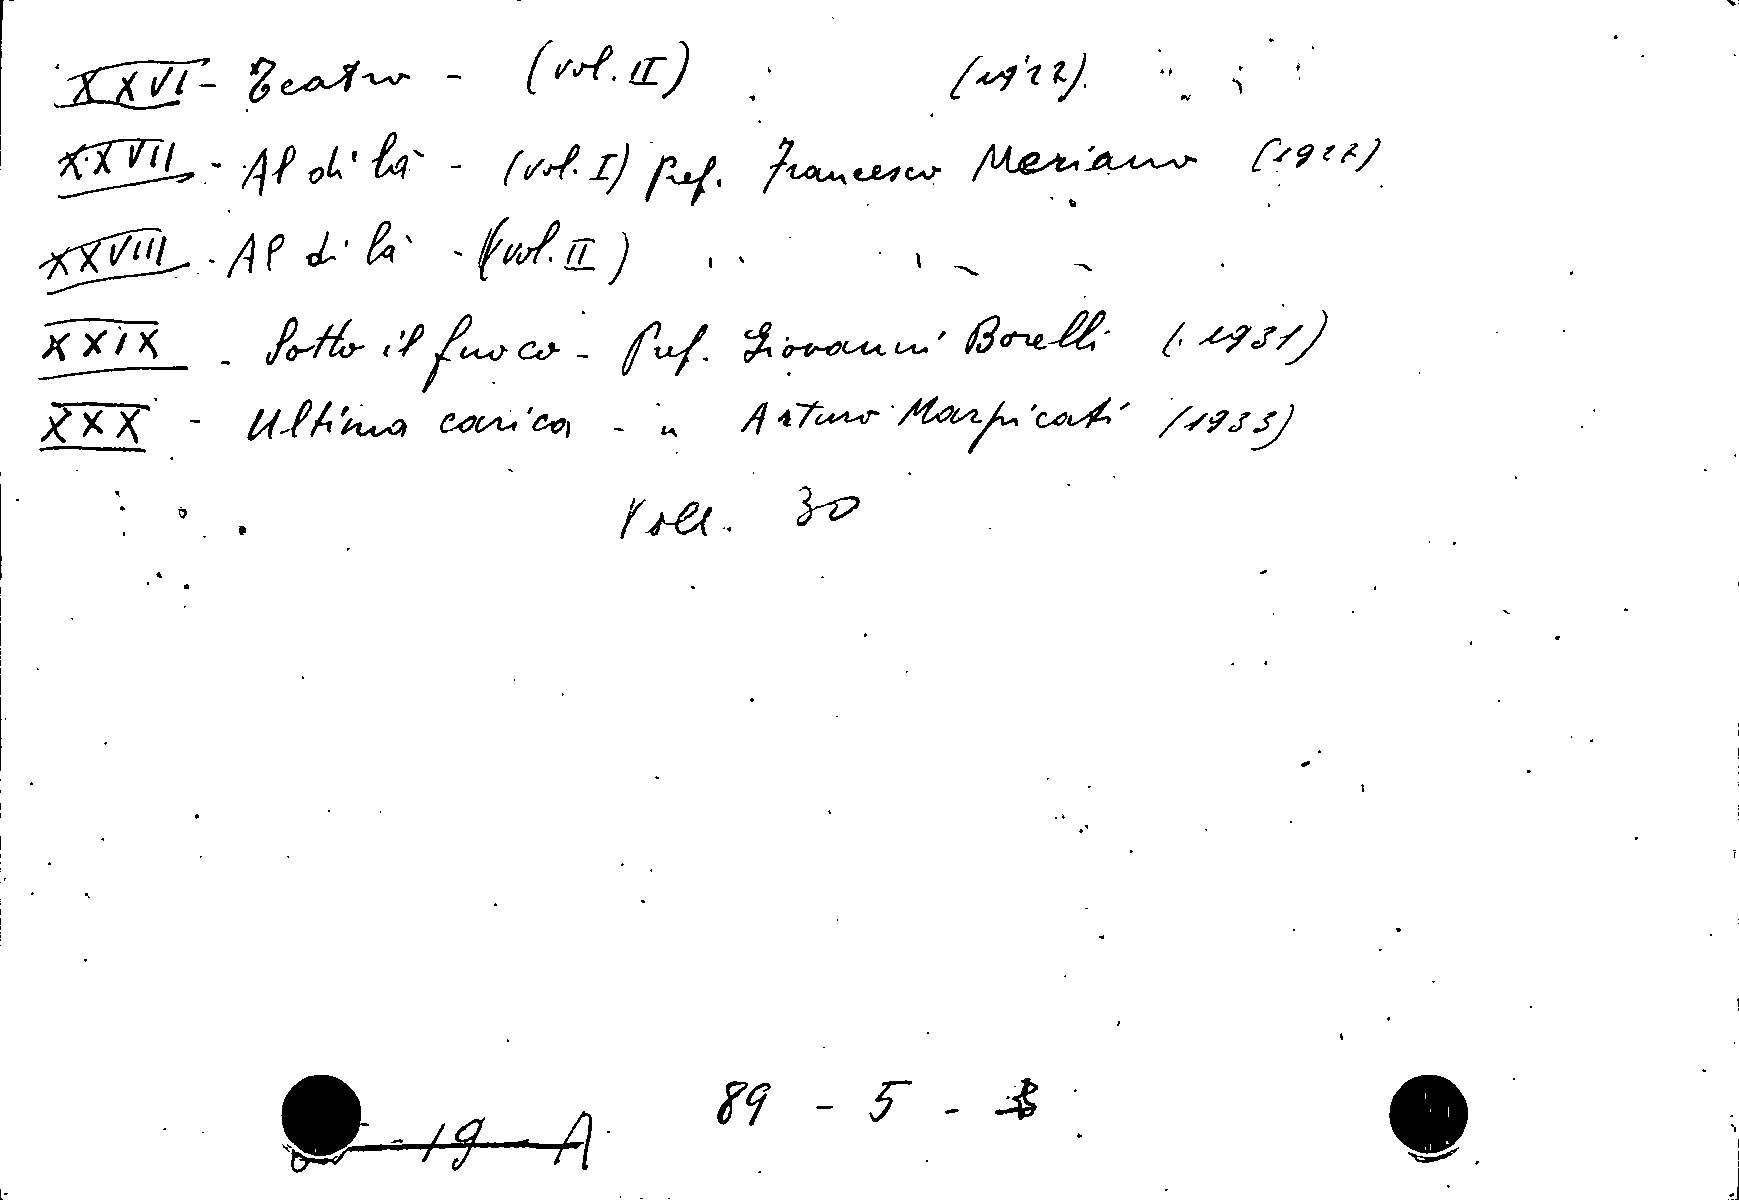 XXVI - Teatro - (vol. II) (1922).
XXVII - Al di là - (vol. I) Pref. Francesco Meriano (1922)
XXVIII - Al di là - (vol. II)
XXIX - Sotto il fuoco - Pref. Giovanni Borelli (1931)
XXX - Ultima carica - " Arturo Marpicati (1933)
Voll. 30
89 - 5 -
- 19 - A